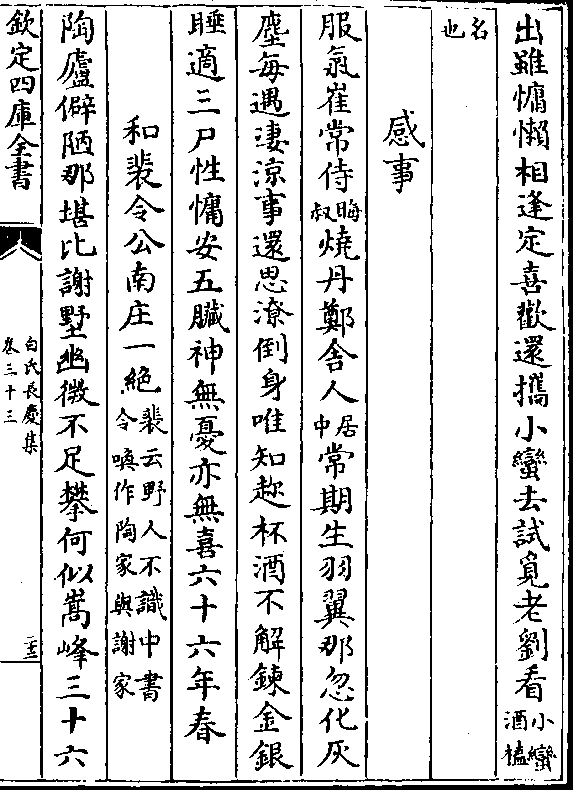 出雖慵懶相逢定喜歡還攜小蠻去試覓老劉看小蠻酒榼
名也
感事
服氣崔常侍晦叔燒丹鄭舍人居中常期生羽翼那忽化灰
塵每遇淒涼事還思潦倒身唯知趂杯酒不解鍊金銀
睡適三尸性慵安五臟神無憂亦無喜六十六年春
和裴令公南庄一絶裴云野人不識中書令喚作陶家與謝家
陶廬僻陋那堪比謝墅幽微不足攀何似嵩峰三十六
欽定四庫全書
白氏長慶集
卷三十三